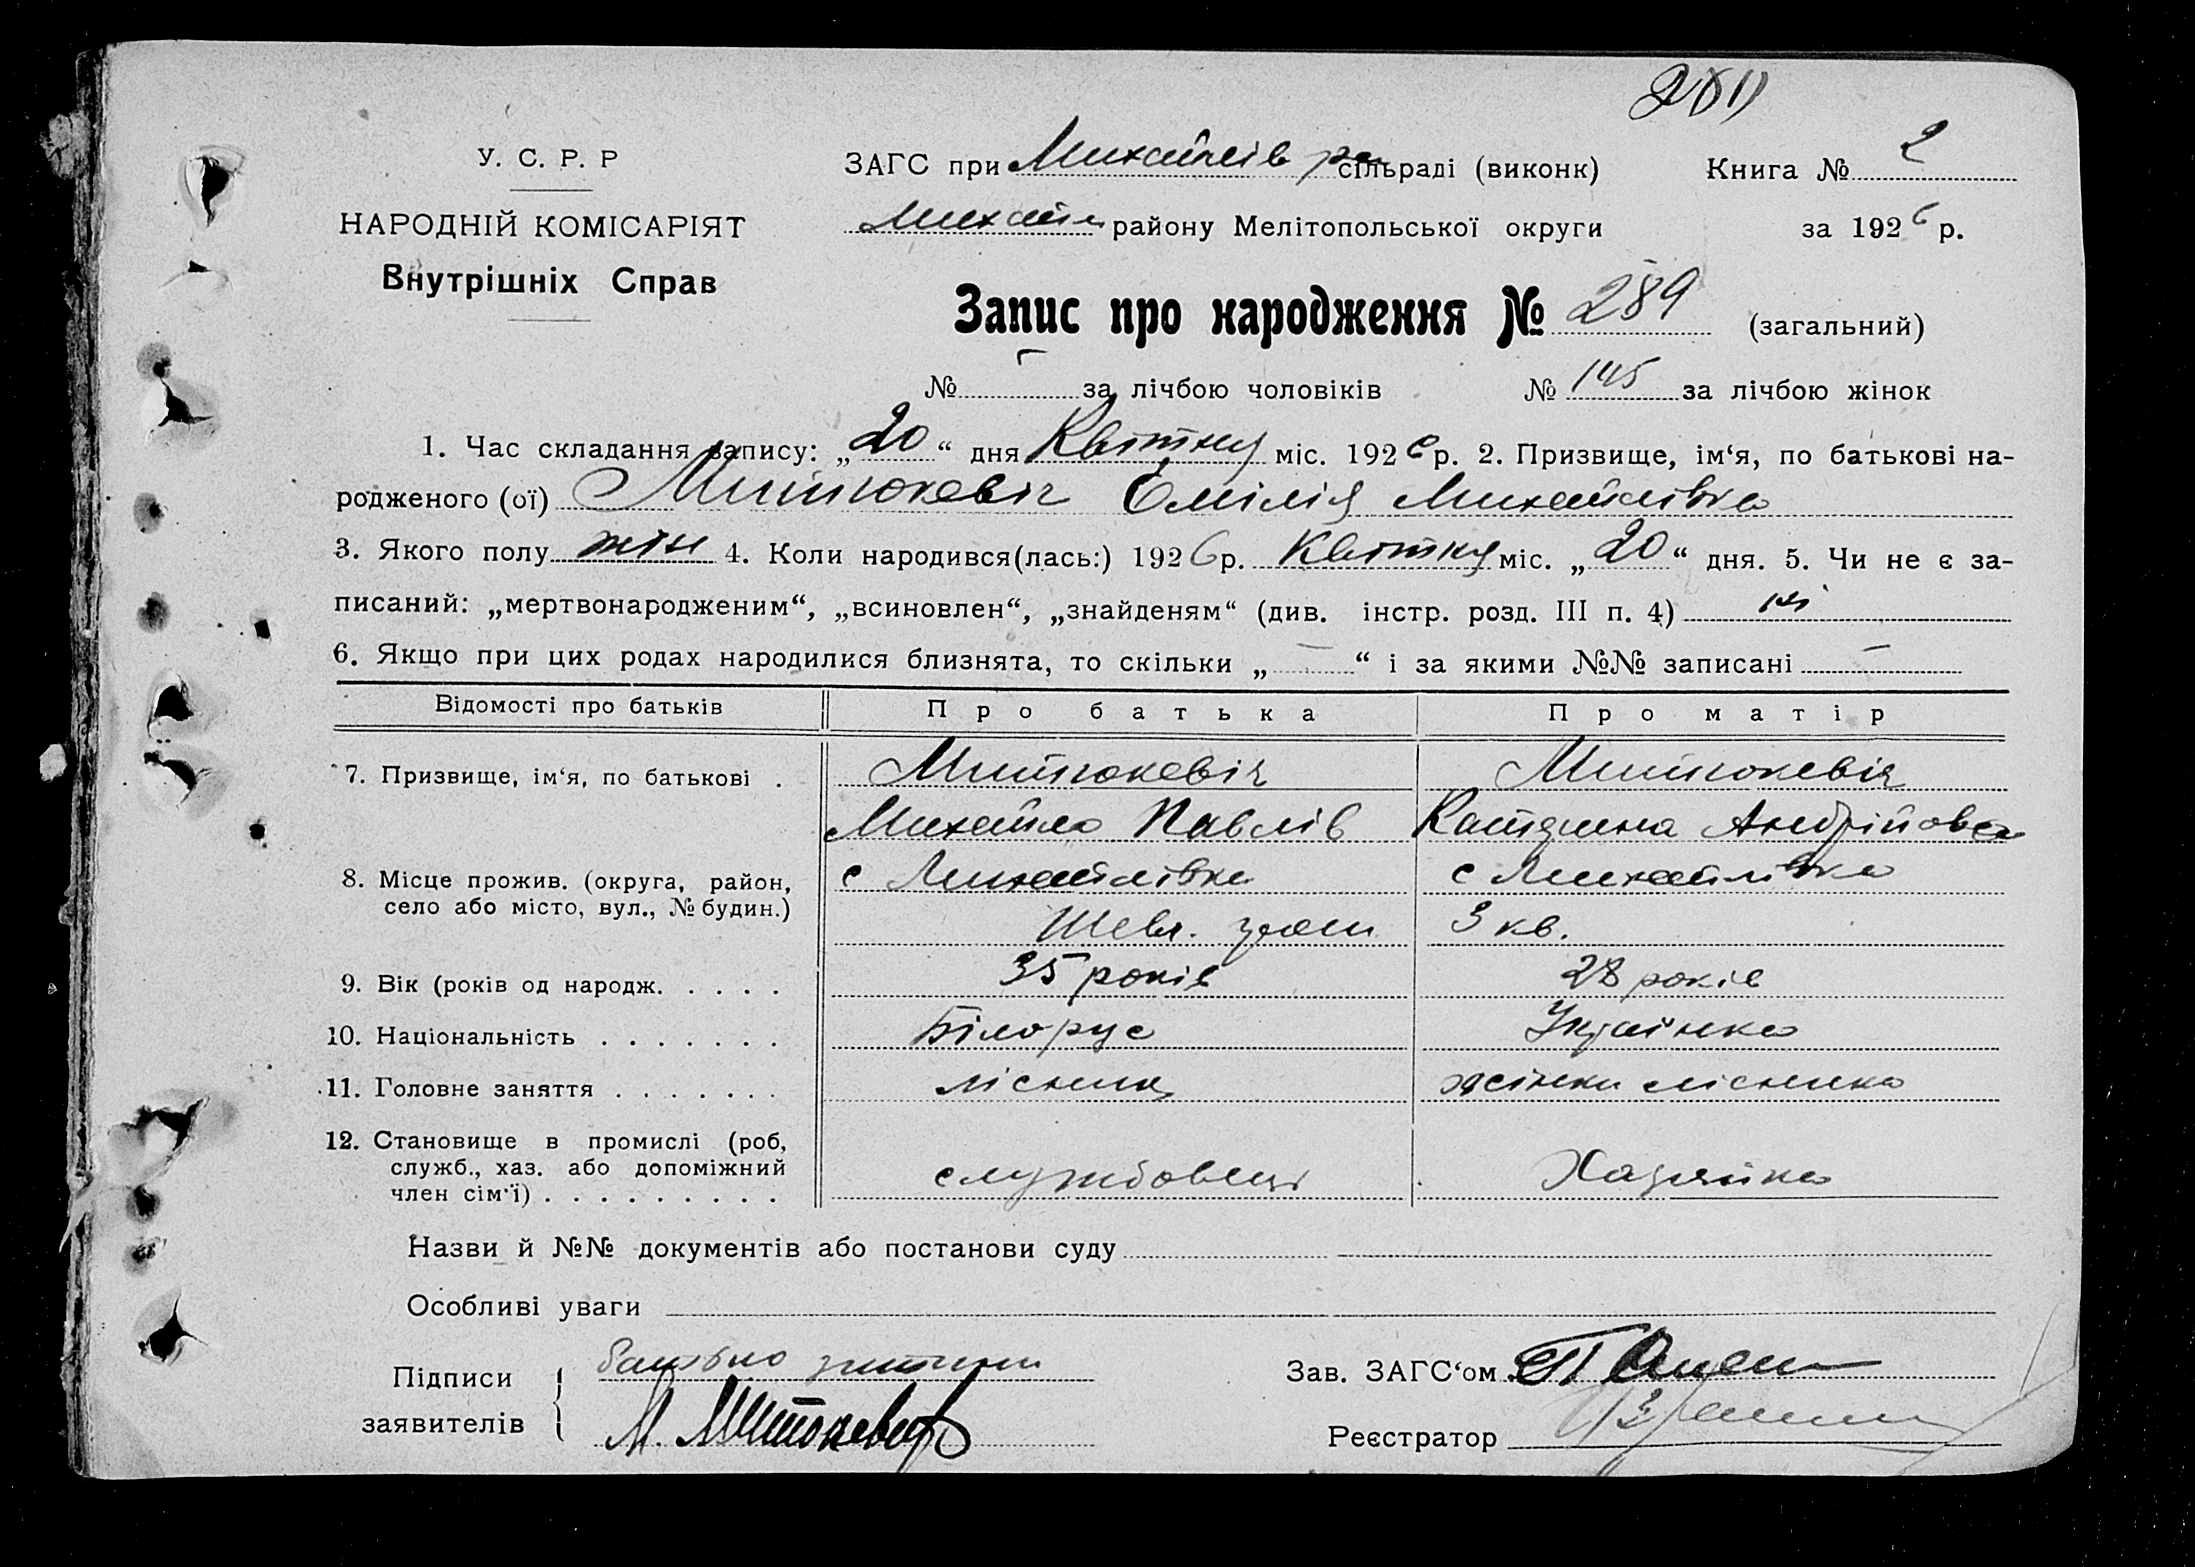 У. С. Р. Р
НАРОДНІЙ КОМІСАРІЯТ
Внутрішніх Справ
ЗАГС при Михайлів ра сільраді (виконк) Книга № 2
Михайл району Мелітопольської округи за 1926 р.
Запис про народження № 289 (загальний)
№ — за лічбою чоловіків № 145 за лічбою жінок
1. Час складання запису: „20“ дня Квітня міс. 1926 р. 2. Призвище, ім‘я, по батькові на-
родженого (ої) Митюкевіч Емілія Михайлівна
3. Якого полу жін 4. Коли народився(лась:) 1926 р. Квітня міс. „20“ дня. 5. Чи не є за-
писаний: „мертвонародженим“, „всиновлен“, „знайденям“ (див. інстр. розд. III п. 4) ні
6. Якщо при цих родах народилися близнята, то скільки „—“ і за якими №№ записані —
Відомості про батьків Про батька Про матір
7. Призвище, ім‘я, по батькові . Митюкевіч Митюкевіч
Михайло Павлів Катерина Андрійовна
8. Місце прожив. (округа, район, с Михайлівка с Михайлівка
село або місто, вул., № будин.) Шевч. 3 кв.
9. Вік (років од народж. . . . . 35 років 28 років
10. Національність . . . . . . . Білорус Українка
11. Головне заняття . . . . . . . лісник жінка лісника
12. Становище в промислі (роб,
служб., хаз. або допоміжний службовець Хазяйка
член сім‘ї) . . . . . . . . .
Назви й №№ документів або постанови суду
Особливі уваги
Підписи батько дитини Зав. ЗАГС‘ом
заявителів М. Митюкевич Реєстратор